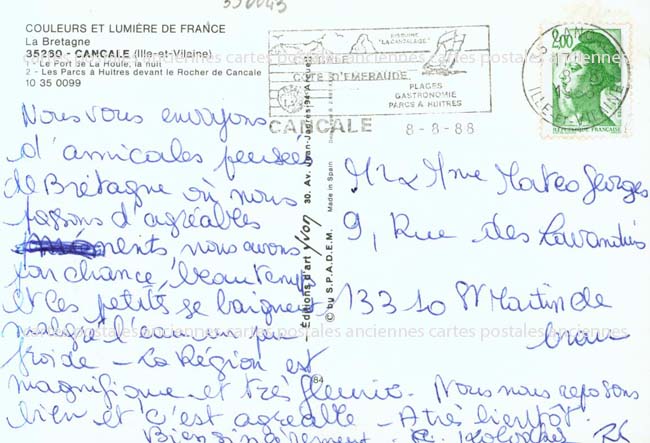 350043
COULEURS ET LUMIÈRE DE FRANCE
La Bretagne
35230 - CANCALE (Ille-et-Vilaine)
1 - Le Port de La Houle, la nuit
2 - Les Parcs à Huîtres devant le Rocher de Cancale
10 35 0099
HISTOIRE
"LA CANCALAISE"
CANCALE
COTE D'EMERAUDE
PLAGES
GASTRONOMIE
PARCS A HUITRES
CANCALE 8-8-88
2,00
REPUBLIQUE FRANÇAISE
ILLE-ET-VILAINE
Nous vous envoyons
d'amicales pensées
de Bretagne où nous
passons d'agréables
moments, nous avons
par chance, beau temps
et les petits se baignent
malgré l'eau un peu
froide - La Région est
magnifique et très fleurie. Nous nous reposons
bien et c'est agréable - A très bientôt.
Bien sincèrement.
- Éditions d'art yvon 30, Av. Jean-Jaurès 94-Arcueil
© by S.P.A.D.E.M. Made in Spain
84
Mr & Mme Mateo Georges
9, Rue des Lavandes
13310 St Martin de
Crau
cartes postales anciennes cartes postales anciennes